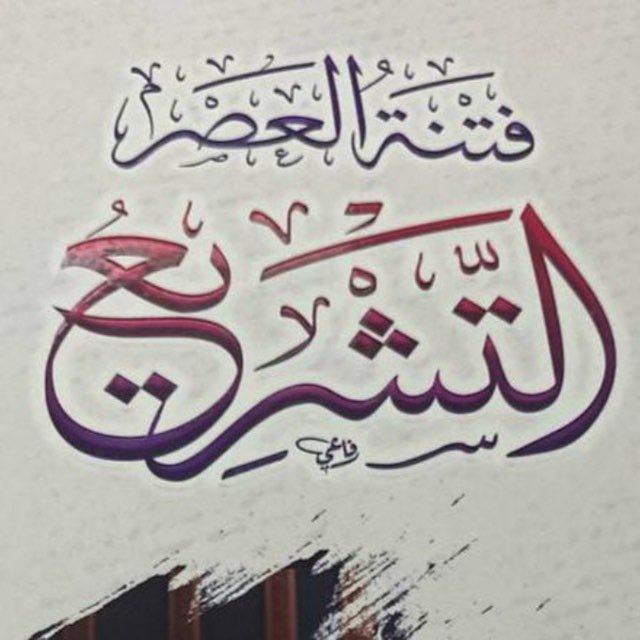 فتنة العصر
التشريع
رفاعي